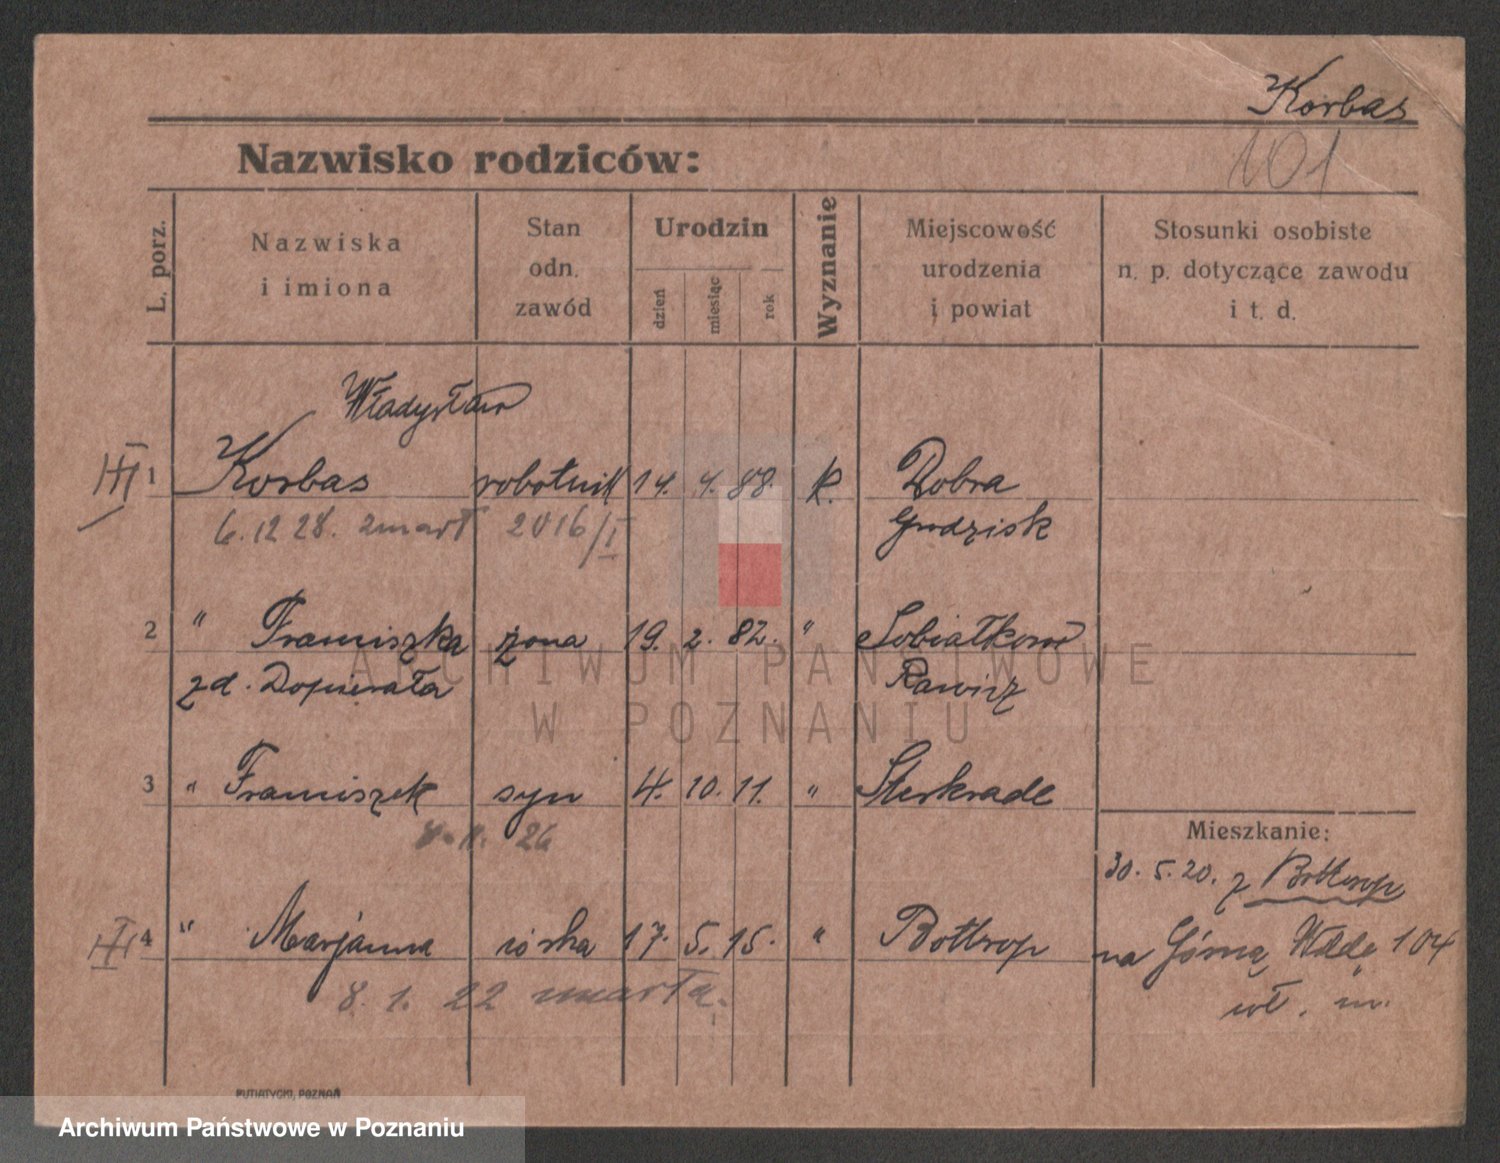 Korbas
101
Nazwisko rodziców:
L. porz.
Nazwiska
i imiona
Stan
odn.
zawód
Urodzin
dzień
miesiąc
rok
Wyznanie
Miejscowość
urodzenia
i powiat
Stosunki osobiste
n. p. dotyczące zawodu
i t. d.
Władysław
III 1 Korbas robotnik 14. 4. 88. k. Dobra
6. 12 28. zmarł 2016/I Grodzisk
2 " Franciszka żona 19. 2. 82. " Sobiałkowo
zd. Dopierała Rawicz
3 " Franciszek syn 4. 10. 11. " Sterkrade
26
Mieszkanie:
30. 5. 20. z Bottrop
4 " Marjanna córka 17. 5. 15. " Bottrop
na Górną Wildę 104
8. 1. 22 zmarła.
wł. m.
PUTIATYCKI, POZNAŃ
ARCHIWUM PAŃSTWOWE
W POZNANIU
Archiwum Państwowe w Poznaniu